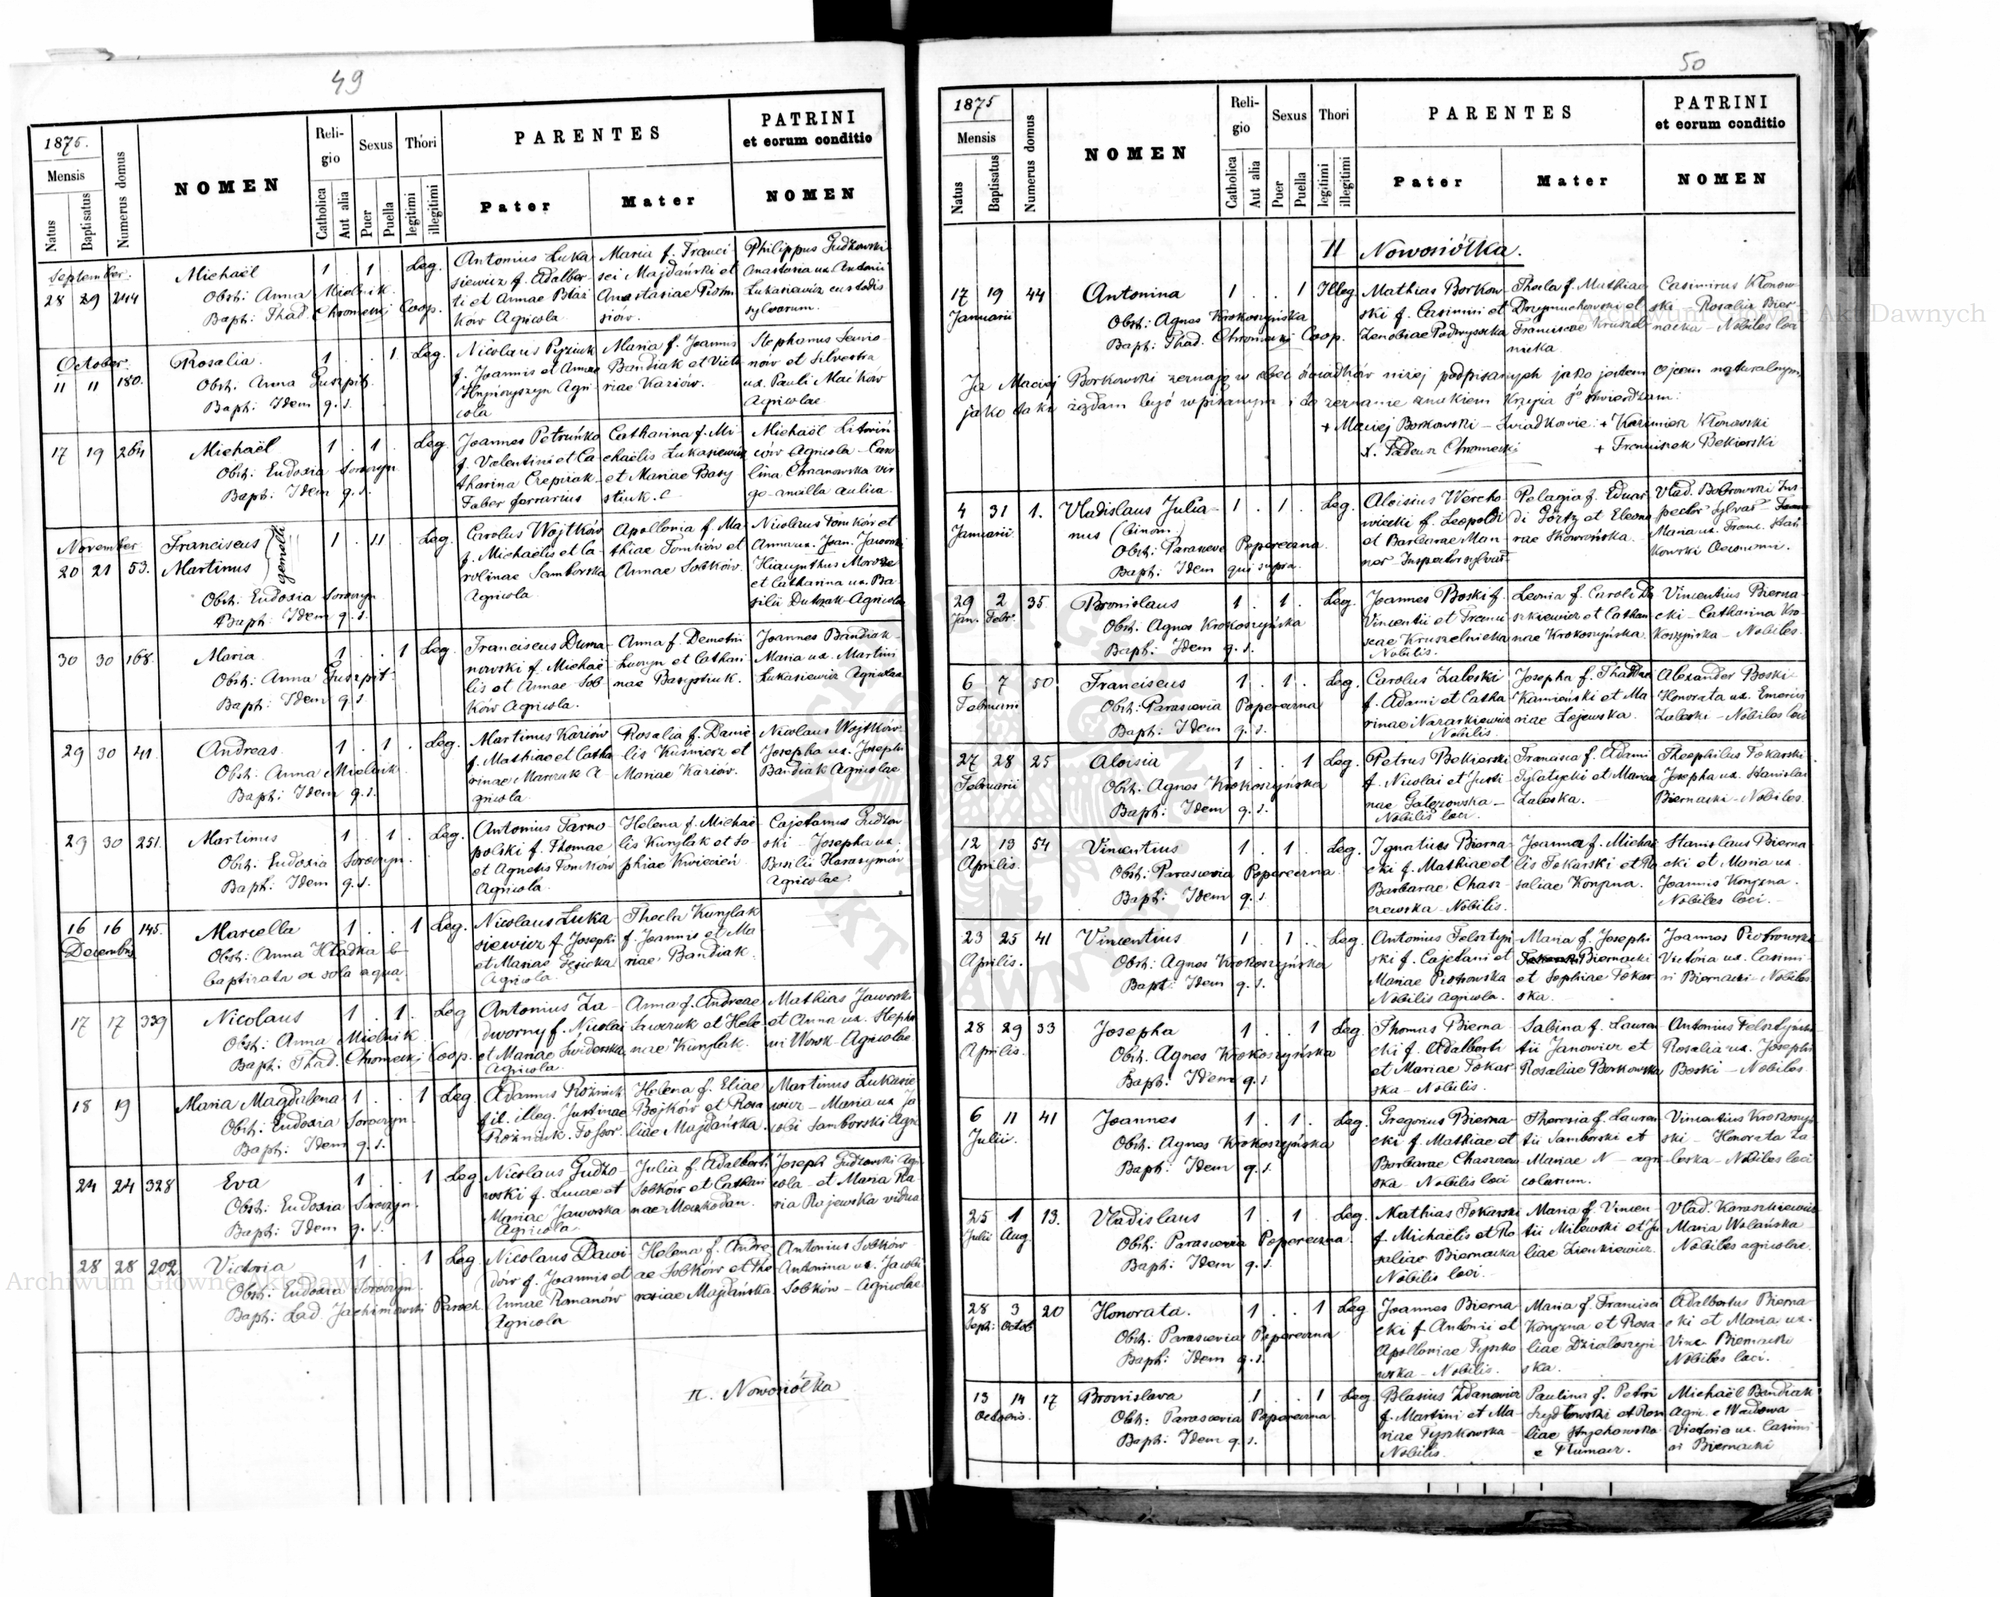 49
1875.
Mensis
Natus
Baptisatus
Numerus domus
NOMEN
Religio
Catholica
Aut alia
Sexus
Puer
Puella
Thori
legitimi
illegitimi
PARENTES
Pater
Mater
PATRINI
et eorum conditio
NOMEN
September
28 29 244 Michaël 1 . 1 . Leg.
Obst: Anna Mielnik
Baph: Thad. Chromecki Coop.
Antonius Luka
siewicz f. Adalber
ti et Annae
ków Agricola
Maria f. Franci
sci Majdański et
Anastasiae
Philippus Gudkowski
Anastasia ux. Antonii
Lukasiewicz custodis
sylvarum.
October
11 11 180. Rosalia. 1 . . 1 Leg.
Obst: Anna Guszpit
Baph: Idem q. s.
Nicolaus
f. Joannis et Annae
Agri
cola
Maria f. Joannis
Bandiak et Victo
riae Kariów.
Stephanus
et Silvestra
ux. Pauli Maćków
Agricolae
17 19 264 Michaël 1 . 1 . Leg.
Obst: Eudoxia Soroczyn
Baph: Idem q. s.
Joannes Petruńko
f. Valentini et Ca
tharina Czepirak
Faber ferrarius
Catharina f. Mi
chaëlis Lukasiewicz
et Mariae Basy
stiuk.
Michaël Litwin
ców Agricola - Caro
lina Chrzanowska vir
go ancilla aulica
November
20 21 53. Franciscus
Martinus
gemelli
1 . 11 . Leg.
Obst: Eudoxia Soroczyn
Baph: Idem q. s.
Carolus Wojtków
f. Michaëlis et Ca
rolinae Samborska
Agricola.
Apollonia f. Ma
thiae Tomków et
Annae Sobków.
Nicolaus Tomków et
Anna ux. Joan. Jaworski
Hiacynthus Moroze
et Catharina ux. Ba
silii Dutczak Agricolae
30 30 168. Maria 1 . . 1 Leg.
Obst: Anna Guszpit
Baph: Idem q. s.
Franciscus Duma
nowski f. Michaë
lis et Annae Sob
ków Agricola.
Anna f. Demetrii
et Cathari
nae Basystiuk.
Joannes Bandiak
Maria ux. Martini
Lukasiewicz Agricolae
29 30 41. Andreas 1 . 1 . Leg.
Obst: Anna Mielnik
Baph: Idem q. s.
Martinus Kariów
f. Mathiae et Catha
rinae Marczuk A
gricola
Rosalia f. Danie
lis Kuśnierz et
Mariae Kariów.
Nicolaus Wojtków
Josepha ux. Josephi
Bandiak Agricolae
29 30 251. Martinus 1 . 1 . Leg.
Obst: Eudoxia Soroczyn
Baph: Idem q. s.
Antonius Tarno
polski f. Thomae
et Agnetis Tomków
Agricola.
Helena f. Michaë
lis Kunylak et So
phiae Kwiecień
Cajetanus Gudkow
ski - Josepha ux.
Basilii Harasymów
Agricolae.
16 16 145. Marcella 1 . . 1 Leg.
Decembris
Obst: Anna Hladka
baptizata ex sola aqua
Nicolaus Luka
siewicz f. Josephi
et Mariae
Agricola
Thecla Kunylak
f. Joannis et Ma
riae Bandiak.
17 17 339 Nicolaus 1 . 1 . Leg
Obst: Anna Mielnik
Baph: Thad. Chromecki Coop.
Antonius Za
dworny f. Nicolai
et Mariae Swiderska
Agricola.
Anna f. Andreae
et Hele
nae Kunylak.
Mathias Jaworski
et Anna ux. Stepha
ni Wowk - Agricolae
18 19 Maria Magdalena 1 . . 1 Leg
Obst: Eudoxia Soroczyn.
Baph: Idem q. s.
Adamus Roźniak
fil. illeg. Justinae
Roźniak. Fossor.
Helena f. Eliae
Bojków et Rosa
liae Majdańska.
Martinus Lukasie
wicz - Maria ux. Ja
cobi Samborski Agri.
24 24 328 Eva 1 . . 1 Leg.
Obst: Eudoxia Soroczyn.
Baph: Idem q. s.
Nicolaus Gudko
wski f. Lucae et
Mariae Jaworska
Agricola.
Julia f. Adalberti
Sobków et Cathari
nae Moczkodan.
Joseph Gudkowski Agri
cola - et Maria Ma
ria Rojewska vidua
28 28 202 Victoria 1 . . 1 Leg
Obst: Eudoxia Soroczyn.
Baph: Lad. Jachimowski Paroch
Nicolaus Dawi
dów f. Joannis et
Annae Romanów
Agricola
Helena f. Andre
ae Sobków et The
resiae Majdańska
Antonius Sobków
Antonina ux. Jacobi
Sobków - Agricolae
n. Nowosiółka
50
1875
Mensis
Natus
Baptisatus
Numerus domus
NOMEN
Religio
Catholica
Aut alia
Sexus
Puer
Puella
Thori
legitimi
illegitimi
PARENTES
Pater
Mater
PATRINI
et eorum conditio
NOMEN
II Nowosiółka.
17 19 44 Antonina 1 . . 1 Illeg
Januarii
Obst: Agnes Krokoszyńska
Baph: Thad. Chromecki Coop.
Mathias Borkow
ski f. Casimiri et
Zenobiae Podwysocka
Thecla f. Mathiae
et
Franciscae Kruszel
nicka
Casimirus Klonow
ski - Rosalia Bier
nacka - Nobiles loci
Ja Maciej Borkowski zeznaję w obec świadków niżej podpisanych jako jestem ojcem naturalnym,
jako taki żądam być wpisanym i to zeznanie znakiem krzyża Sº stwierdzam.
+ Maciej Borkowski - Świadkowie: + Kazimierz Klonowski
X. Tadeusz Chromecki + Franciszek Bekierski
4 31 1. Vladislaus Julia 1 . 1 . Leg.
Januarii
nus (binom)
Obst: Parasceve Peperczna
Baph: Idem qui supra.
Aloisius Wercho
wiecki f. Leopoldi
et Barbarae Man
ner Inspector sylvar.
Pelagia f. Eduar
di Görtz et Eleono
rae Skowrońska.
Vlad. Bobrowski Ins
pector sylvar
Maria ux. Franc.
kowski Oeconomi.
29 2 35 Bronislaus 1 . 1 . Leg.
Jan. Febr.
Obst: Agnes Krokoszyńska
Baph: Idem q. s.
Joannes Boski f.
Vincentii et Franci
scae Kruszelnicka
Nobilis.
Leonia f. Caroli Da
szkiewicz et Cathari
nae Krokoszyńska.
Vincentius Bierna
cki - Catharina Kro
koszyńska - Nobiles.
6 7 50. Franciscus 1 . 1 . Leg.
Februarii
Obst: Parascevia Peperczna
Baph: Idem q. s.
Carolus Zaleski
f. Adami et Catha
rinae Narazkiewicz
Nobilis.
Josepha f. Thaddae
Kamiński et Ma
riae Łojewska.
Alexander Boski
Honorata ux. Emerici
Zaleski - Nobiles loci
27 28 25 Aloisia 1 . . 1 Leg.
Februarii
Obst: Agnes Krokoszyńska
Baph: Idem q. s.
Petrus Bekierski
f. Nicolai et Justi
nae Galęzowska -
Nobilis loci
Francisca f. Adami
et Mariae
Zaleska.
Theophilus Tokarski
Josepha ux. Stanislai
Biernacki - Nobiles.
12 13 54 Vincentius 1 . 1 . Leg.
Aprilis.
Obst: Parascevia Peperczna
Baph: Idem q. s.
Ignatius Bierna
cki f. Mathiae et
Barbarae Chasz
czewska - Nobilis.
Joanna f. Michaë
lis Tokarski et Ro
saliae Konyzna.
Stanislaus Bierna
cki et Maria ux.
Joannis Konyzna.
Nobiles loci.
23 25 41 Vincentius 1 . 1 . Leg.
Aprilis.
Obst: Agnes Krokoszyńska
Bapt: Idem q. s.
Antonius Felsztyń
ski f. Cajetani et
Mariae Piotrowska
Nobilis agricola.
Maria f. Josephi
Biernacki
et Sophiae Tokar
ska.
Joannes Piotrowski
Victoria ux. Casimi
ri Biernacki - Nobiles.
28 29 33 Josepha 1 . . 1 Leg.
Aprilis.
Obst: Agnes Krokoszyńska
Baph: Idem q. s
Thomas Bierna
cki f. Adalberti
et Mariae Tokar
ska - Nobilis.
Sabina f. Lauren
tii Janowicz et
Rosaliae Borkowska
Antonius Felsztyński
Rosalia ux. Josephi
Boski - Nobiles.
6 11 41 Joannes 1 . 1 . Leg.
Julii.
Obst: Agnes Krokoszyńska
Baph: Idem q. s.
Gregorius Bierna
cki f. Mathiae et
Barbarae Chaszczew
ska - Nobilis loci
Theresia f. Lauren
tii Samborski et
Mariae N - agri
colarum.
Vincentius Krokoszyń
ski - Honorata Za
leska - Nobiles loci
25 1 13. Vladislaus 1 . 1 . Leg.
Julii Aug
Obst: Parascevia Peperczna.
Baph: Idem q. s.
Mathias Tokarski
f. Michaëlis et Ro
saliae Biernacka
Nobilis loci.
Maria f. Vincen
tii Milewski et Ju
liae Zienkiewicz.
Vlad. Karaszkiewicz
Maria Wolańska -
Nobiles agricolae.
28 3 20 Honorata. 1 . . 1 Leg
Septb. Octob
Obst: Parascevia Peperczna
Baph: Idem q. s.
Joannes Bierna
cki f. Antonii et
Apolloniae Tyszko
wska - Nobilis.
Maria f. Francisci
Konyzna et Rosa
liae Działoszyń
ska.
Adalbertus Bierna
cki et Maria ux.
Vinc. Biernacki
Nobiles loci.
13 14 17 Bronislava 1 . . 1 Leg
Octobris.
Obst: Parascevia Peperczna
Baph: Idem q. s.
Blasius Zdanowicz
f. Martini et Ma
riae Tyszkowska -
Nobilis.
Paulina f. Petri
Szydłowski et Rosa
liae
e Tłumacz.
Michaël Bandiak
Agric. e Wadowa -
Victoria ux. Casimi
ri Biernacki
Archiwum Główne Akt Dawnych
Archiwum Główne Akt Dawnych